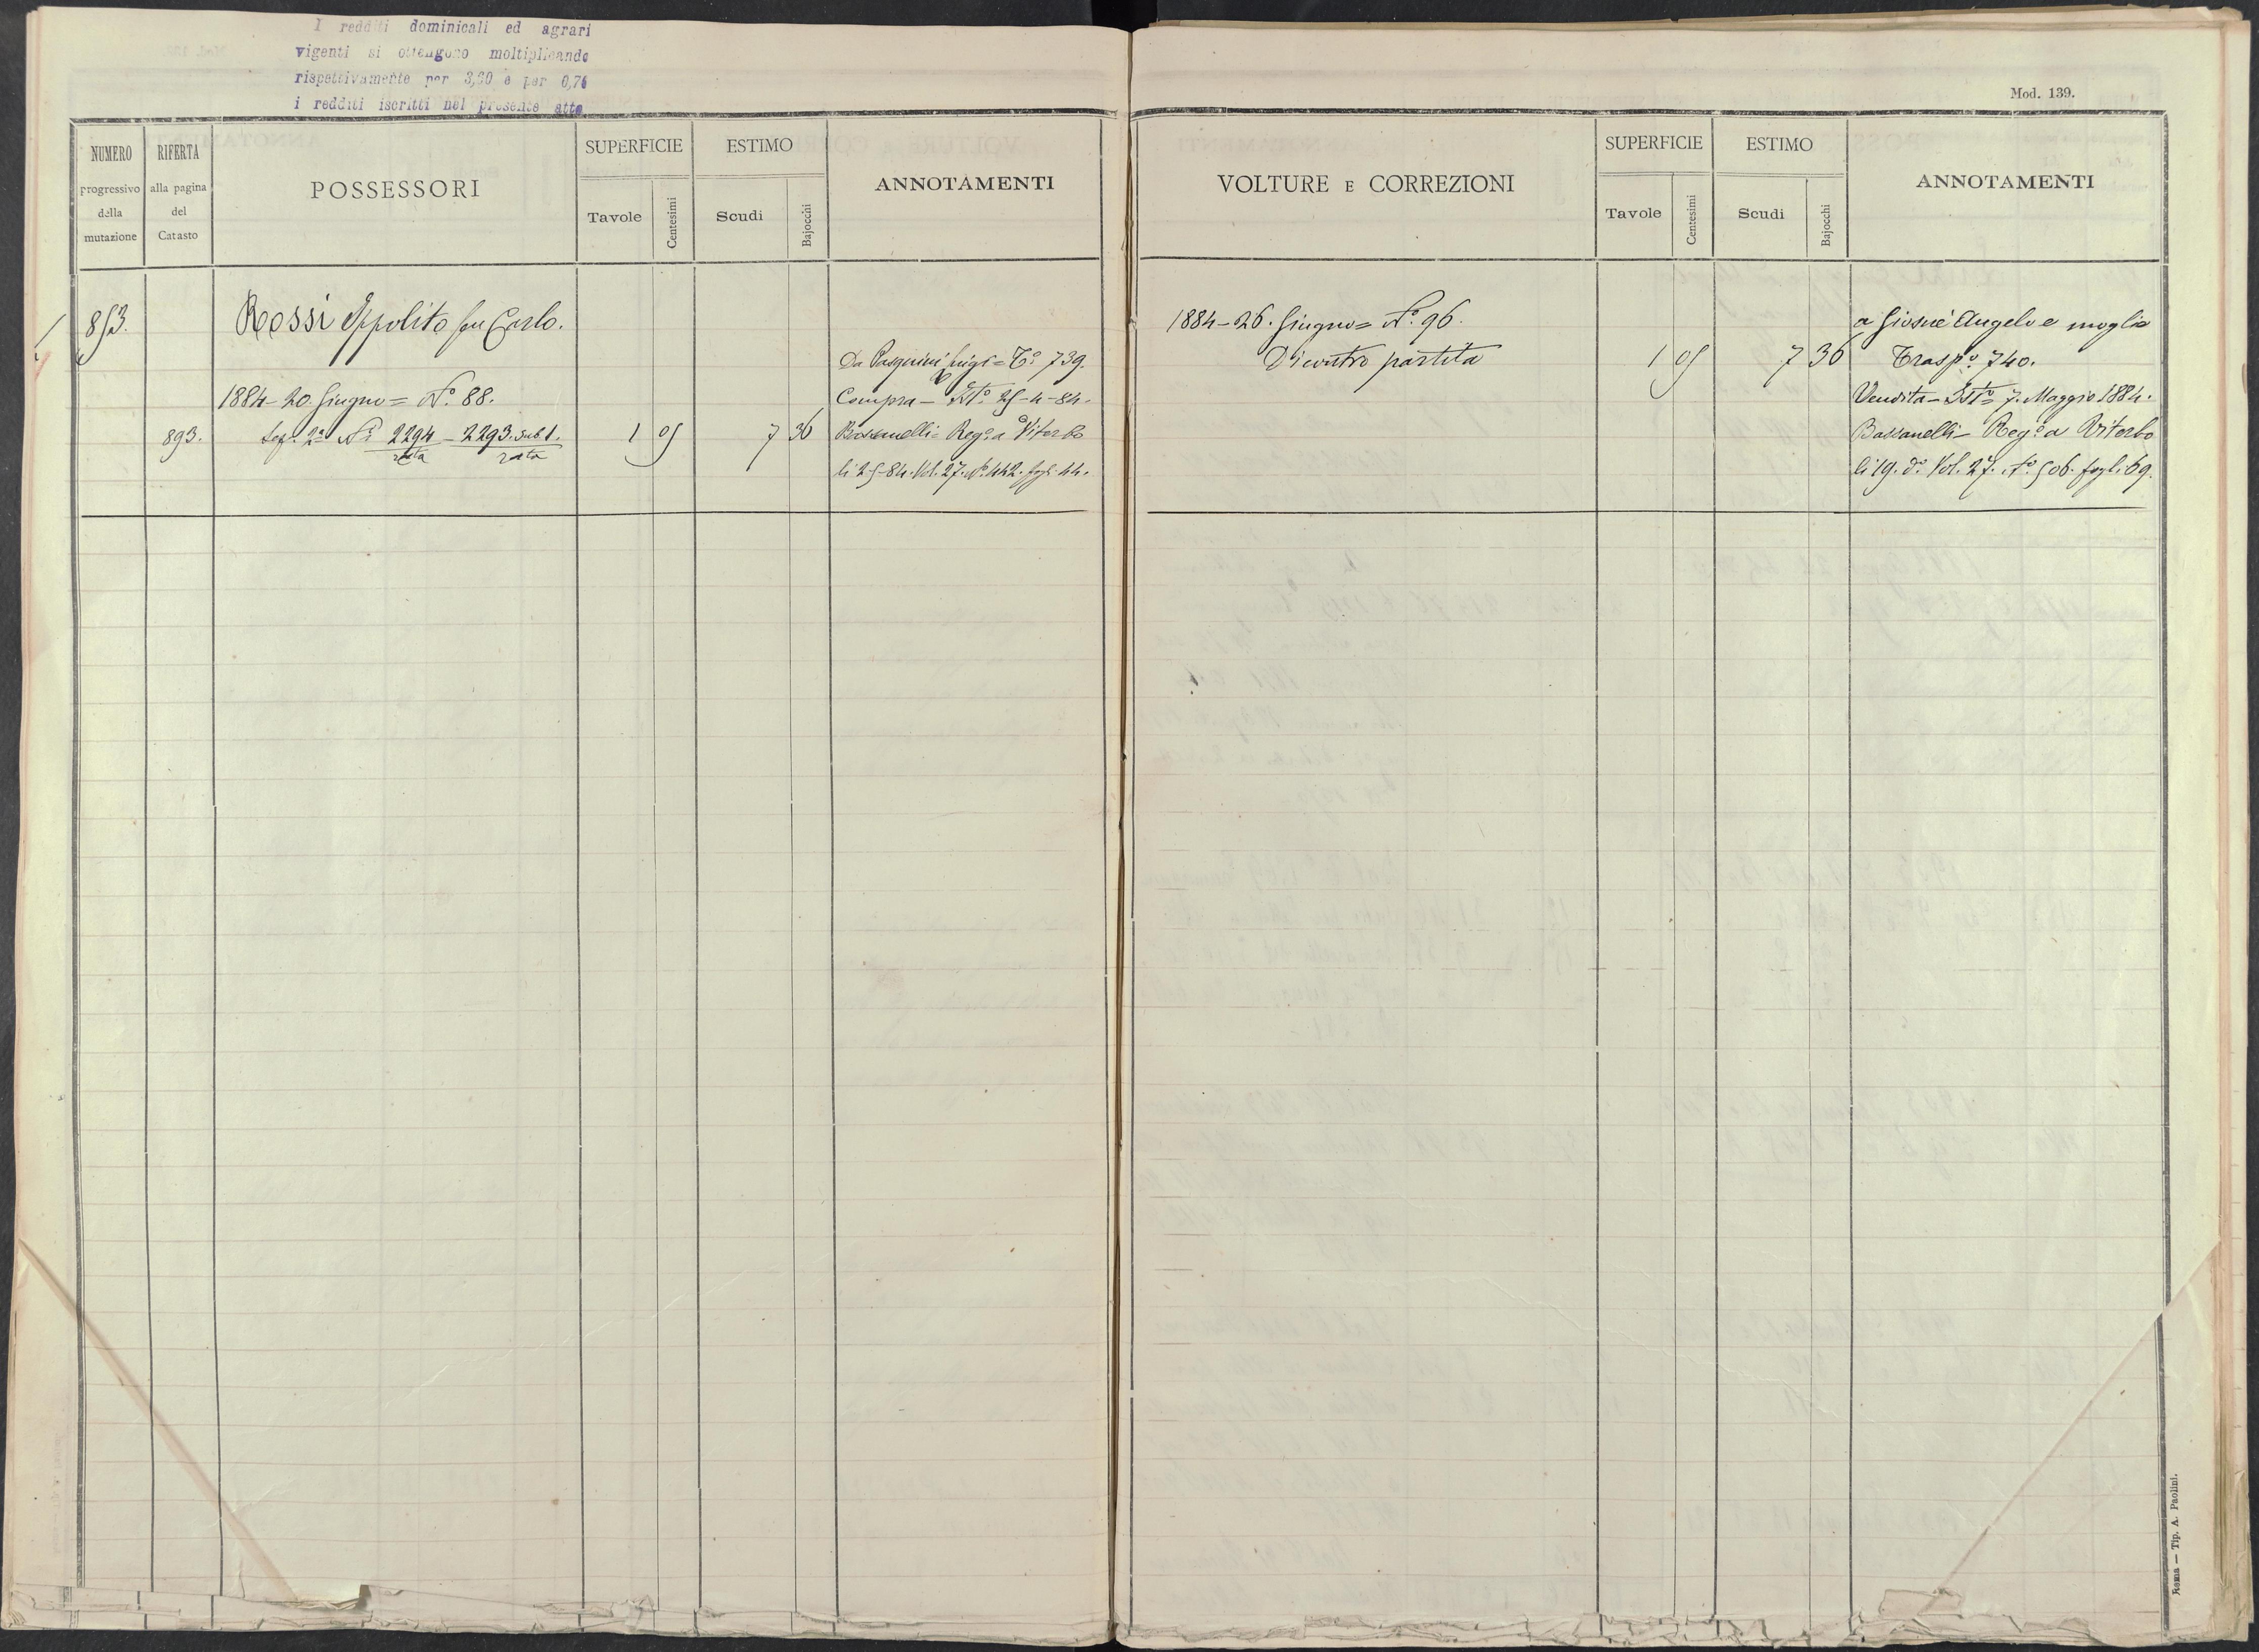 I redditi dominicali ed agrari
vigenti si ottengono moltiplicando
rispettivamente per 3,30 e per 0,76
i redditi iscritti nel presente atto
NUMERO
progressivo
della
mutazione
RIFERTA
alla pagina
del
Catasto
POSSESSORI
SUPERFICIE
Tavole
Centesimi
ESTIMO
Scudi
Bajocchi
ANNOTAMENTI
853.
Rossi Ippolito fu Carlo.
Da Pasquini Luigi = T.º 739.
1884 - 20. Giugno = Nº. 88.
Compra - Istº. 25-4-84.
893.
Sez. 2ª Nⁱ 2294 - 2293. sub 1.
rata rata
1 05
7 36
Bassanelli = Regº. a Viterbo
li 2-5-84. Vol. 27. Nº. 442. fogl. 44.
Mod. 139.
VOLTURE E CORREZIONI
SUPERFICIE
Tavole
Centesimi
ESTIMO
Scudi
Bajocchi
ANNOTAMENTI
1884 - 26. Giugno = Nº. 96.
a Giosuè Angelo e moglie
Dicontro partita
1 05
7 36
Traspº. 740.
Vendita - Istº = 7. Maggio 1884.
Bassanelli - Regº. a Viterbo
li 19. dº. Vol. 27. Nº. 506. fogl. 69.
Roma — Tip. A. Paolini.